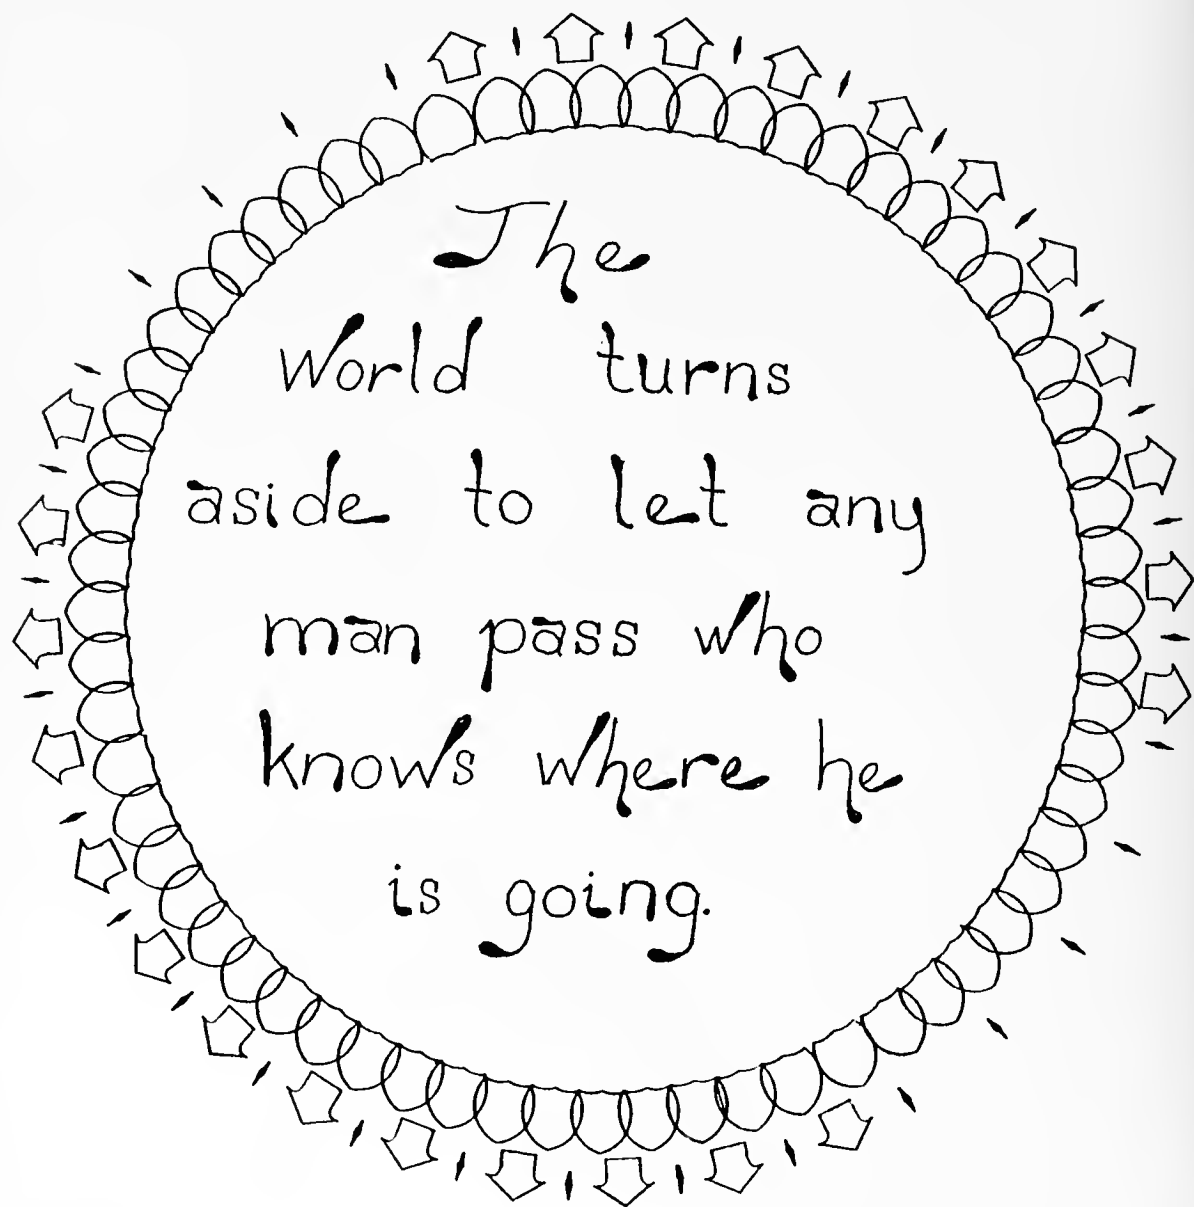 The
World turns
aside to let any
man pass who
knows where he
is going.